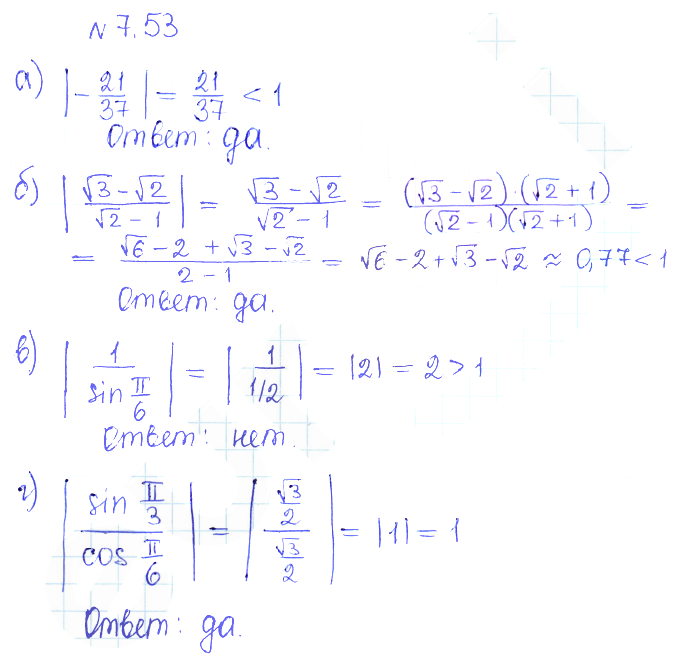 № 7.53
а) |-21/37| = 21/37 < 1
Ответ: да.
б) |(√3 - √2)/(√2 - 1)| = (√3 - √2)/(√2 - 1) = ((√3 - √2)·(√2 + 1))/((√2 - 1)(√2 + 1)) =
= (√6 - 2 + √3 - √2)/(2 - 1) = √6 - 2 + √3 - √2 ≈ 0,77 < 1
Ответ: да.
в) |1/(sin π/6)| = |1/(1/2)| = |2| = 2 > 1
Ответ: нет.
г) |(sin π/3)/(cos π/6)| = |(√3/2)/(√3/2)| = |1| = 1
Ответ: да.